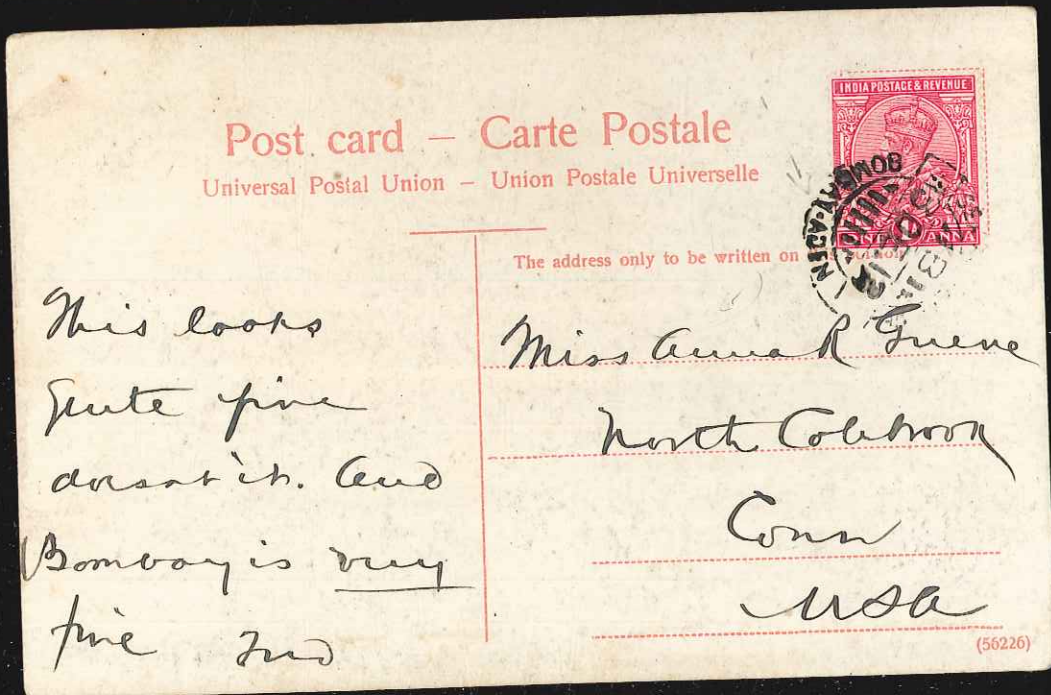 Post card – Carte Postale
Universal Postal Union – Union Postale Universelle
INDIA POSTAGE & REVENUE
ONE ANNA
BOMBAY-ADEN
The address only to be written on
This looks
quite fine
doesn't it. And
Bombay is very
fine
Miss Anna R
North Colebrook
Conn
USA
(56226)